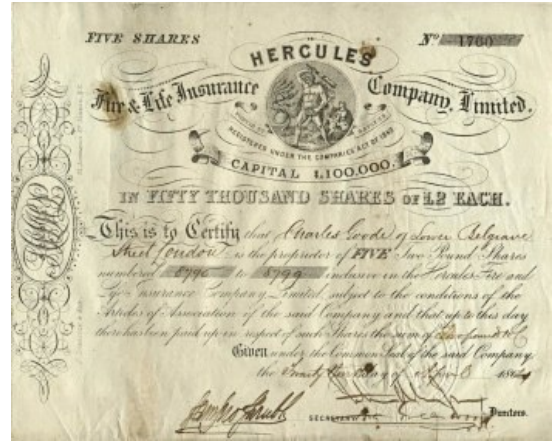 FIVE SHARES
No. 1760
HERCULES
Fire & Life Insurance Company, Limited.
REGISTERED UNDER THE COMPANIES ACT OF 1862
CAPITAL £100,000.
IN FIFTY THOUSAND SHARES OF £2 EACH.
This is to Certify that Charles Goode of Lower Belgrave
Street London is the proprietor of FIVE Two Pound Shares
numbered 8795 to 8799 inclusive in the Hercules Fire and
Life Insurance Company Limited, subject to the conditions of the
Articles of Association of the said Company and that up to this day
there has been paid up in respect of such Shares the sum of
Given under the Common Seal of the said Company
the day of 186
SECRETARY
Directors.